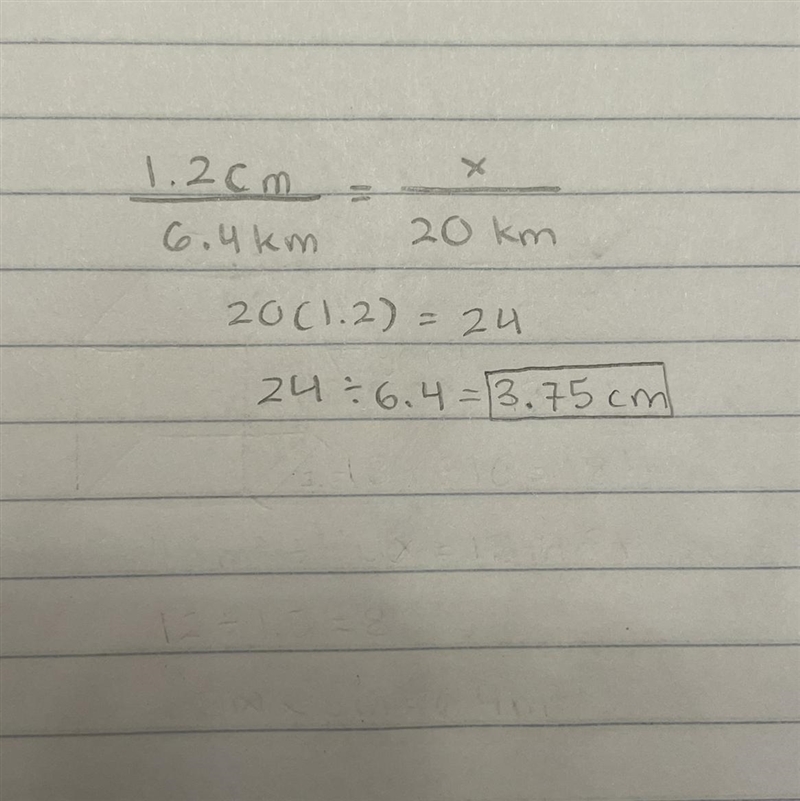 1.2cm / 6.4km = x / 20 km
20(1.2) = 24
24 ÷ 6.4 = 3.75 cm